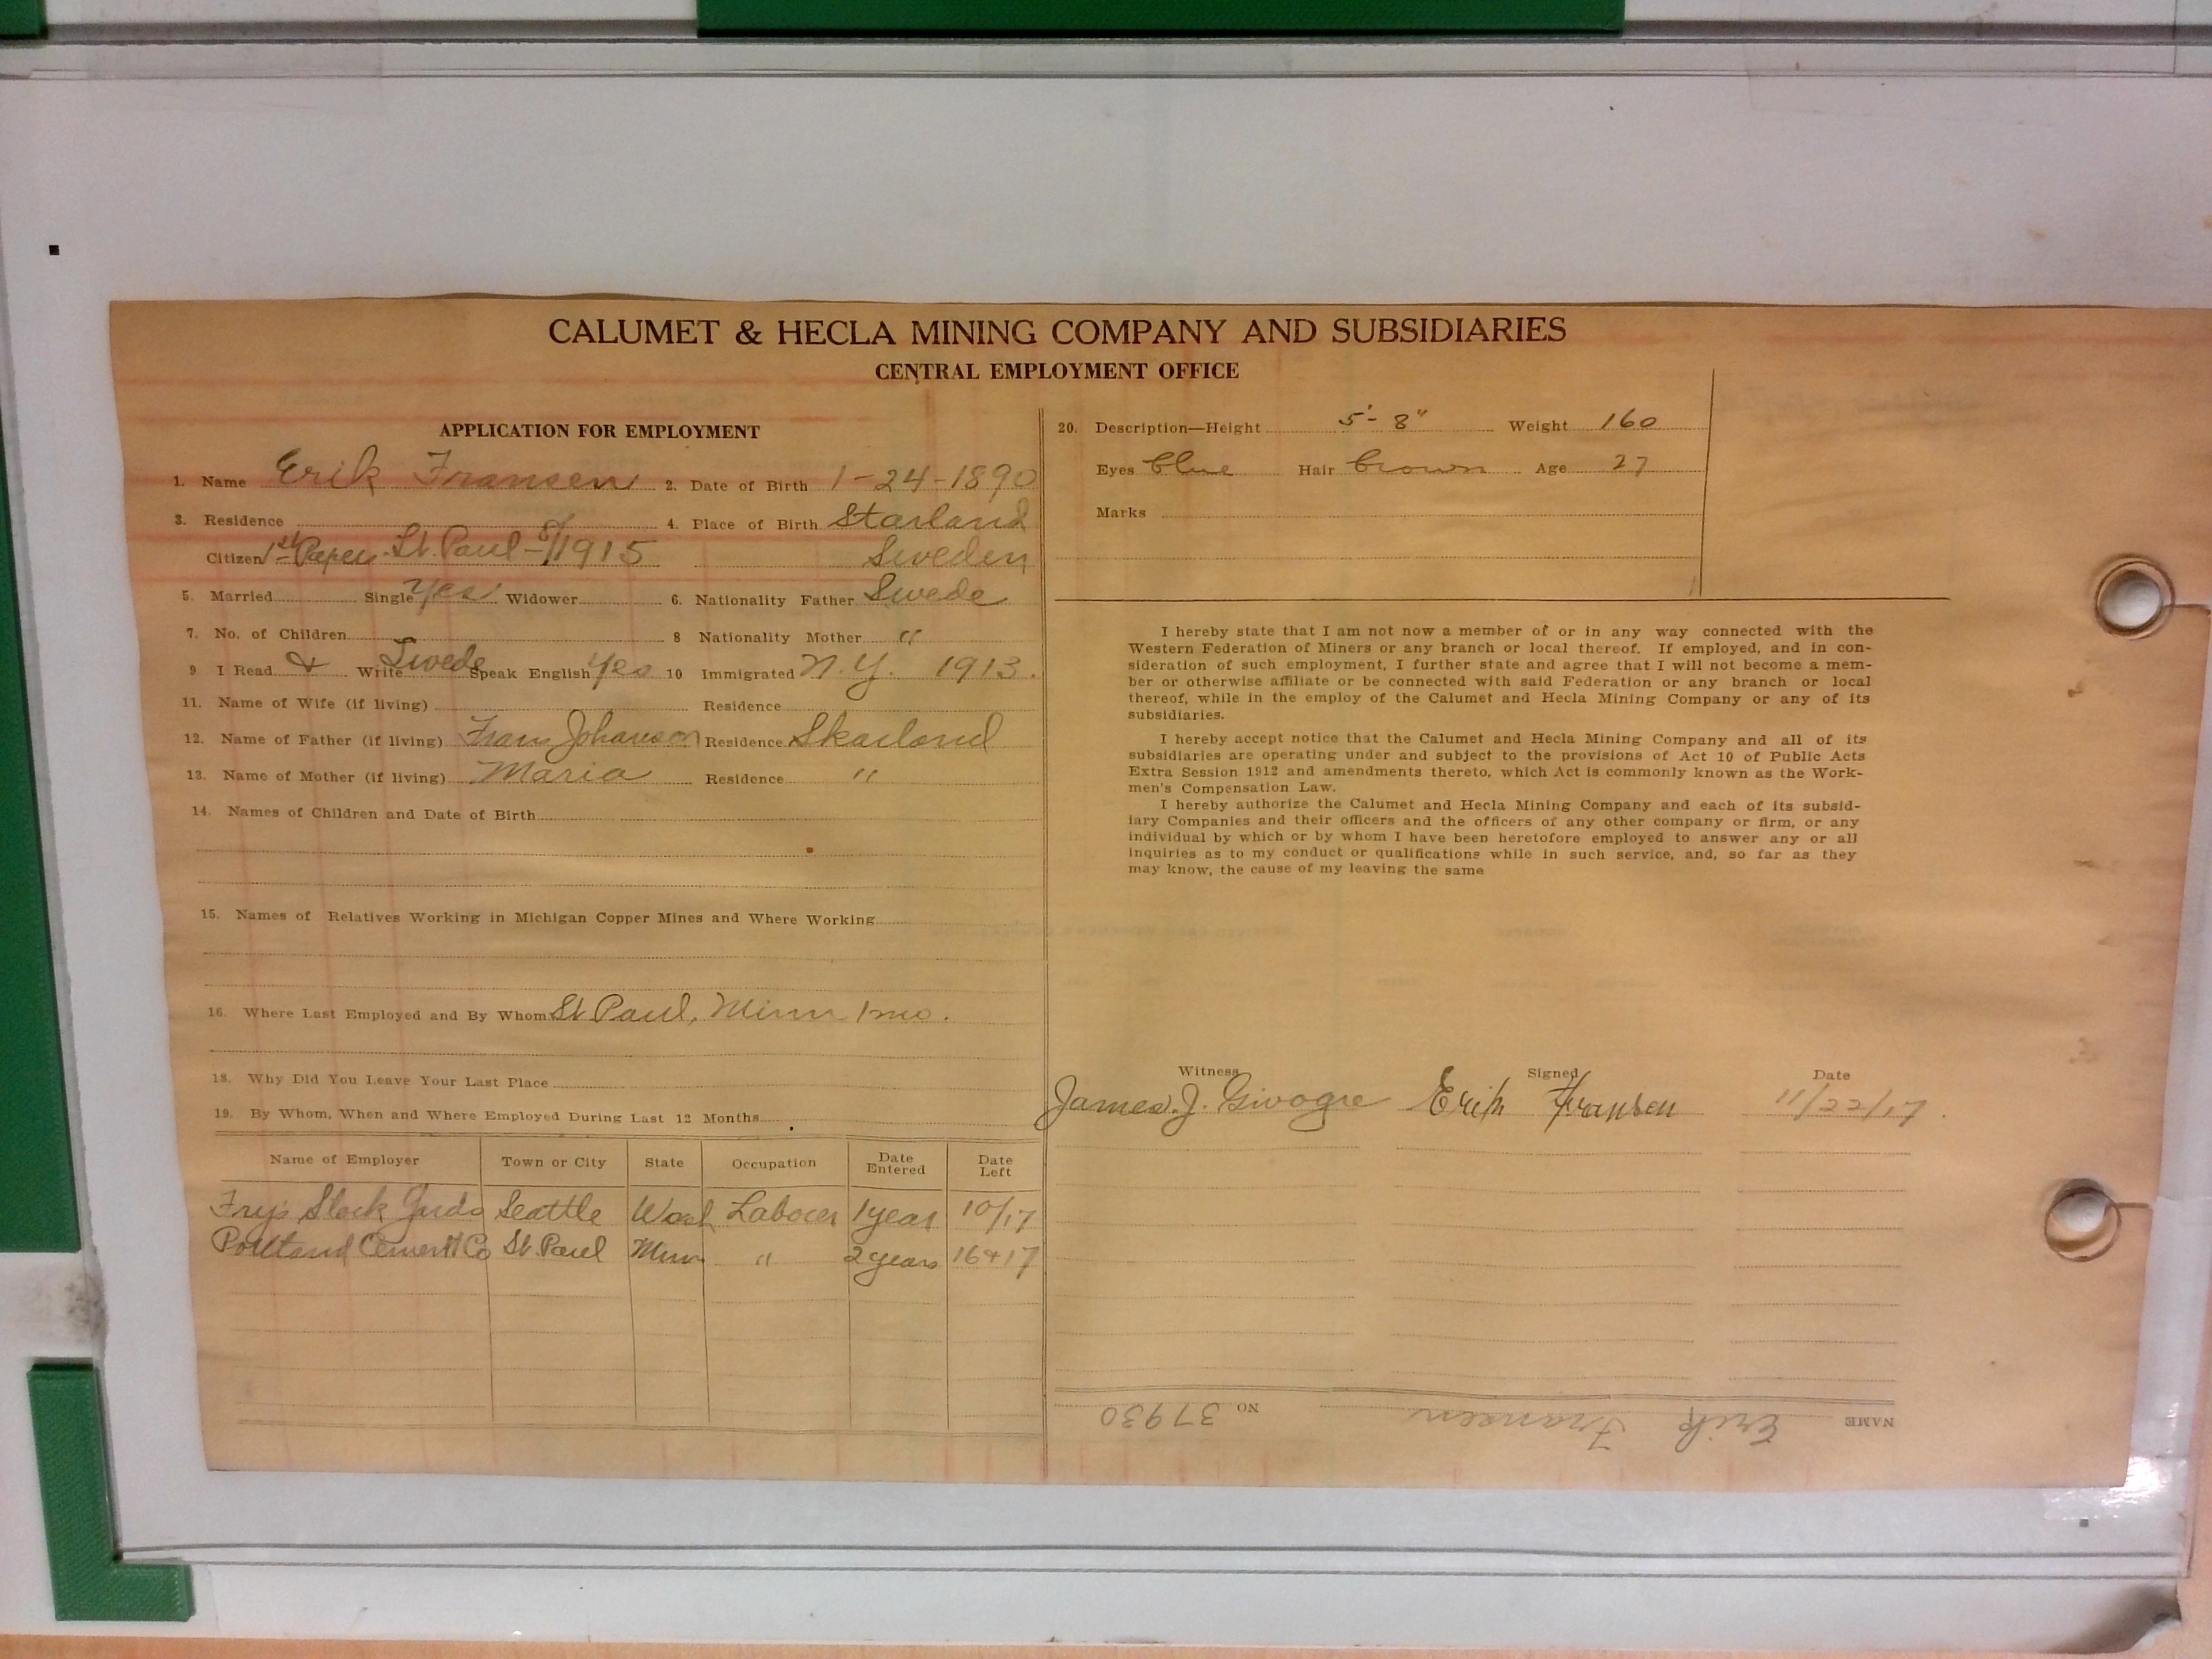 CALUMET & HECLA MINING COMPANY AND SUBSIDIARIES
CENTRAL EMPLOYMENT OFFICE
APPLICATION FOR EMPLOYMENT
1. Name Erik Fransen 2. Date of Birth 1-24-1890
3. Residence 4. Place of Birth Starland
Citizen 1st Paper St. Paul - 8/1915 Sweden
5. Married Single Yes Widower 6. Nationality Father Swede
7. No. of Children 8 Nationality Mother "
9 I Read & Write Swede Speak English Yes 10 Immigrated N.Y. 1913.
11. Name of Wife (if living) Residence
12. Name of Father (if living) Frans Johanson Residence Skarland
13. Name of Mother (if living) Maria Residence "
14. Names of Children and Date of Birth
15. Names of Relatives Working in Michigan Copper Mines and Where Working
16. Where Last Employed and By Whom St Paul, Minn 1 mo.
18. Why Did You Leave Your Last Place
19. By Whom, When and Where Employed During Last 12 Months
Name of Employer Town or City State Occupation Date Entered Date Left
Frys Stock Yards Seattle Wash Laborer 1 year 10/17
Portland Cement Co St. Paul Minn " 2 years 16+17
20. Description—Height 5'-8" Weight 160
Eyes blue Hair brown Age 27
Marks
I hereby state that I am not now a member of or in any way connected with the
Western Federation of Miners or any branch or local thereof. If employed, and in con-
sideration of such employment, I further state and agree that I will not become a mem-
ber or otherwise affiliate or be connected with said Federation or any branch or local
thereof, while in the employ of the Calumet and Hecla Mining Company or any of its
subsidiaries.
I hereby accept notice that the Calumet and Hecla Mining Company and all of its
subsidiaries are operating under and subject to the provisions of Act 10 of Public Acts
Extra Session 1912 and amendments thereto, which Act is commonly known as the Work-
men's Compensation Law.
I hereby authorize the Calumet and Hecla Mining Company and each of its subsid-
iary Companies and their officers and the officers of any other company or firm, or any
individual by which or by whom I have been heretofore employed to answer any or all
inquiries as to my conduct or qualifications while in such service, and, so far as they
may know, the cause of my leaving the same
Witness Signed Date
James J. Erik Fransen 11/22/17.
NAME Erik Fransen NO 37930